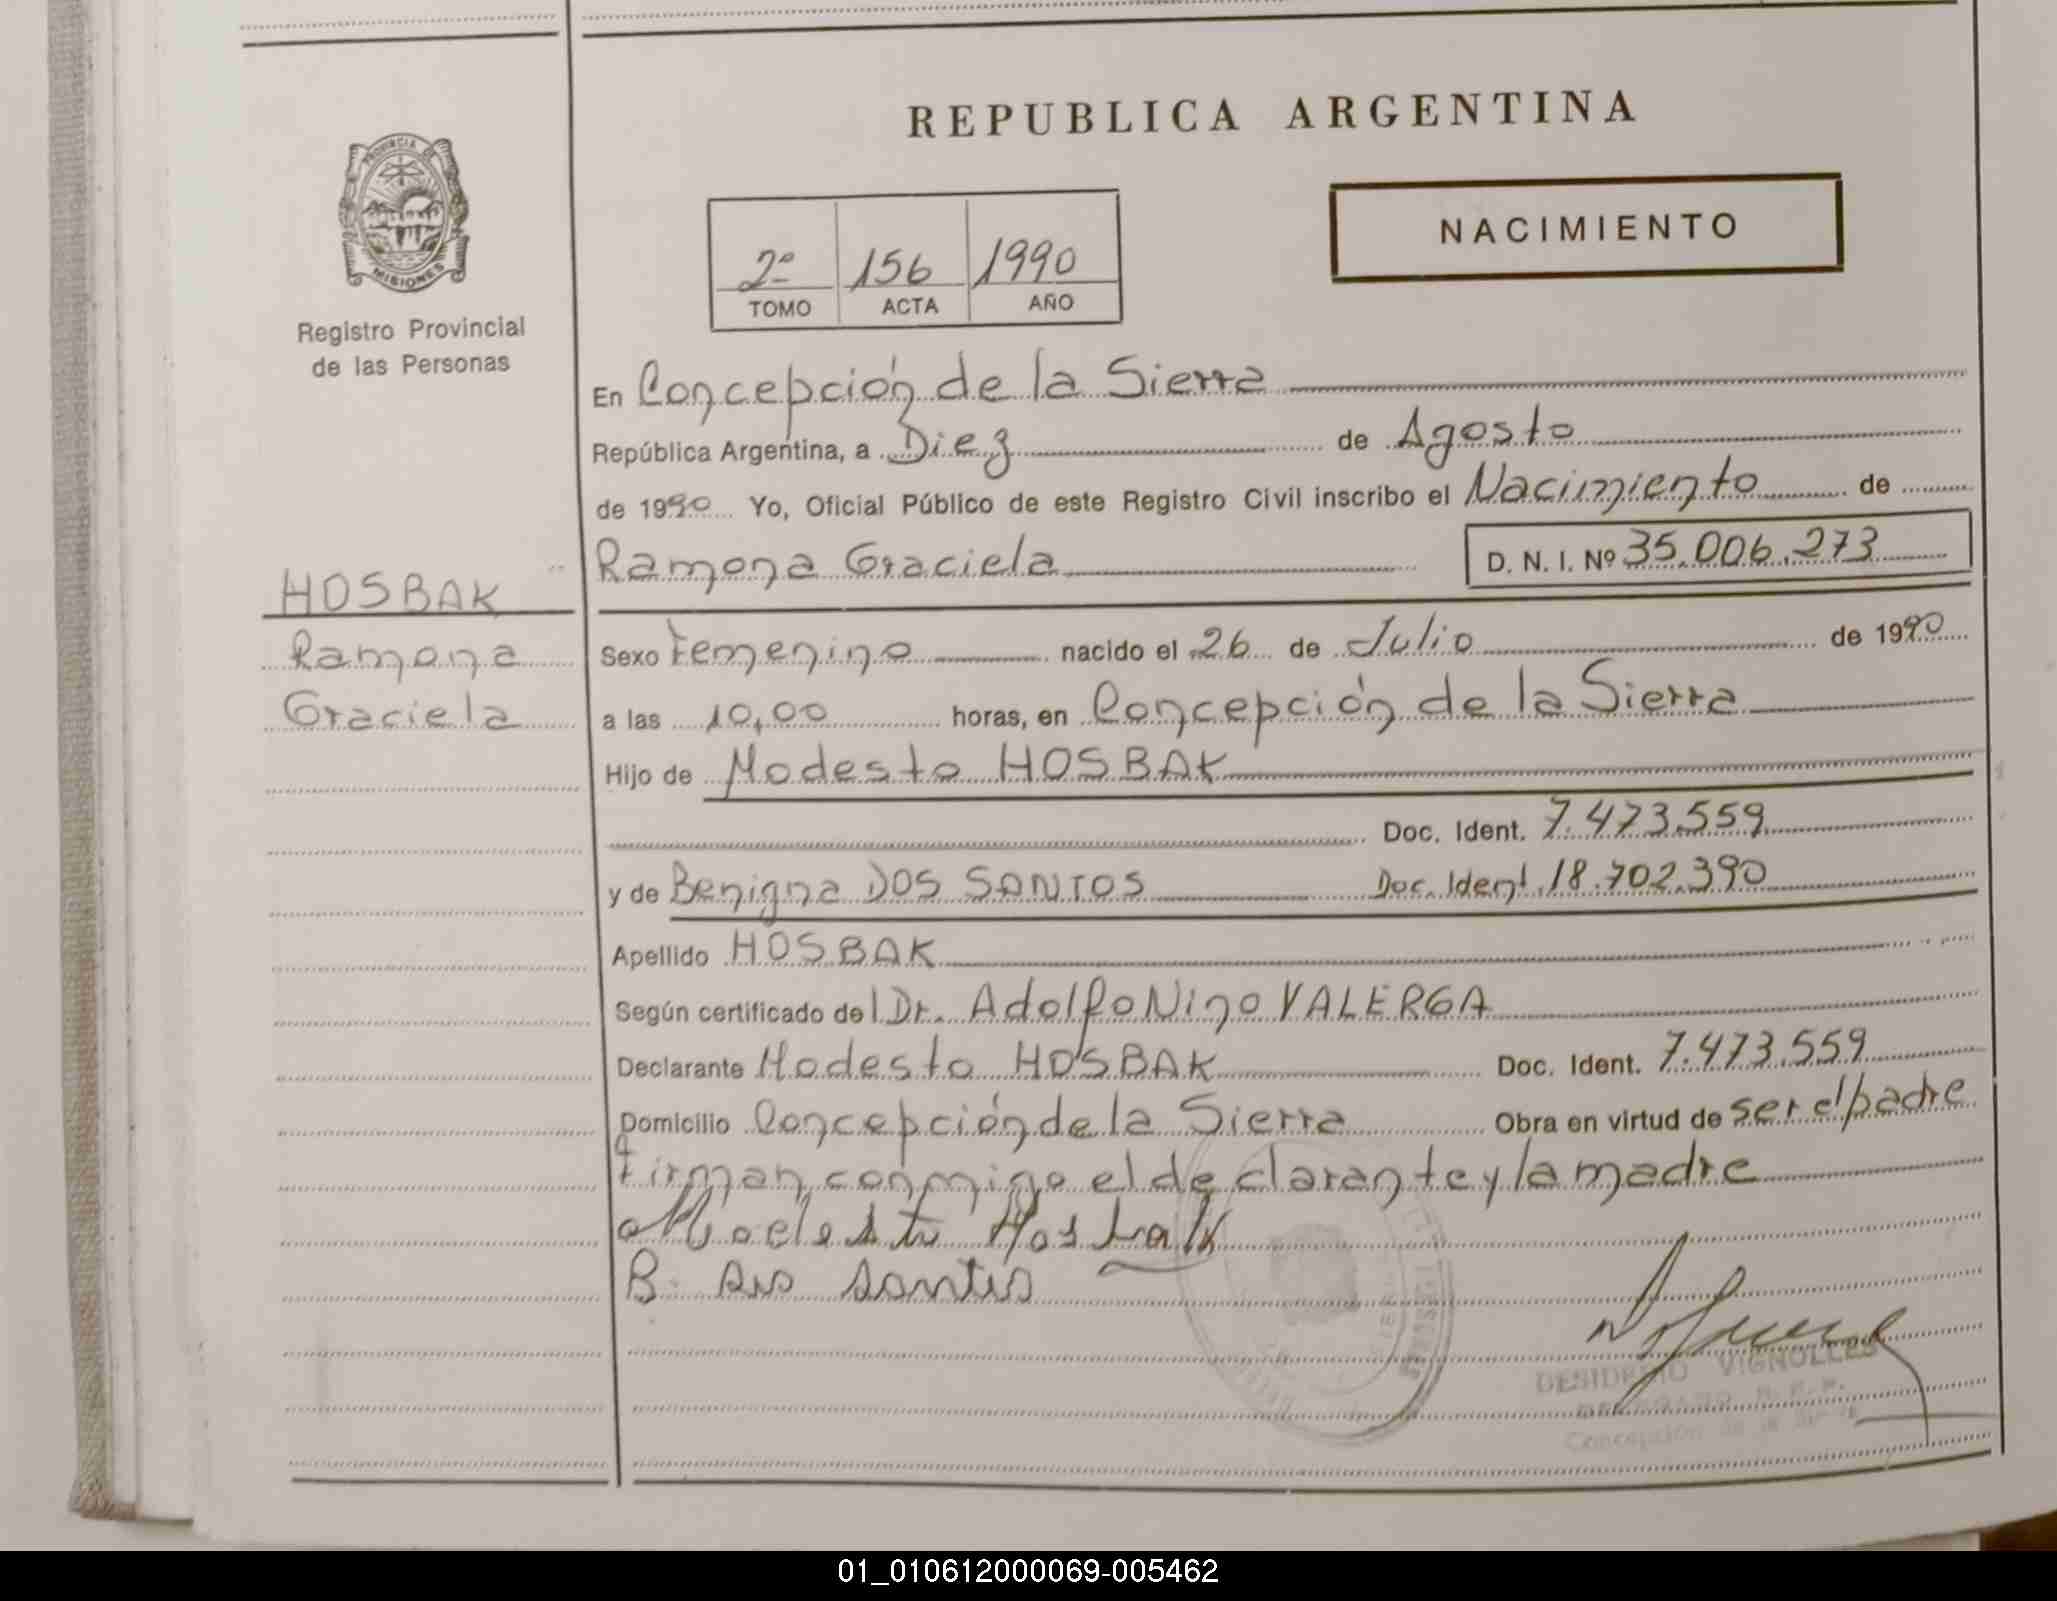 REPUBLICA ARGENTINA
PROVINCIA DE
MISIONES
Registro Provincial
de las Personas
NACIMIENTO
2º 156 1990
TOMO ACTA AÑO
En Concepción de la Sierra
República Argentina, a Diez de Agosto
de 1990 Yo, Oficial Público de este Registro Civil inscribo el Nacimiento de
Ramona Graciela D. N. I. Nº 35.006.273
HOSBAK
Ramona
Graciela
Sexo Femenino nacido el 26 de Julio de 1990
a las 10,00 horas, en Concepción de la Sierra
Hijo de Modesto HOSBAK
Doc. Ident. 7.473.559
y de Benigna DOS SANTOS Doc. Ident. 18.702.390
Apellido HOSBAK
Según certificado del Dr. Adolfo Nino VALERGA
Declarante Modesto HOSBAK Doc. Ident. 7.473.559
Domicilio Concepción de la Sierra Obra en virtud de ser el padre
Firman conmigo el declarante y la madre
Modesto Hosbak
B. dos santos
DESIDERIO VIGNOLLES
Concepción de la Sierra
01_010612000069-005462